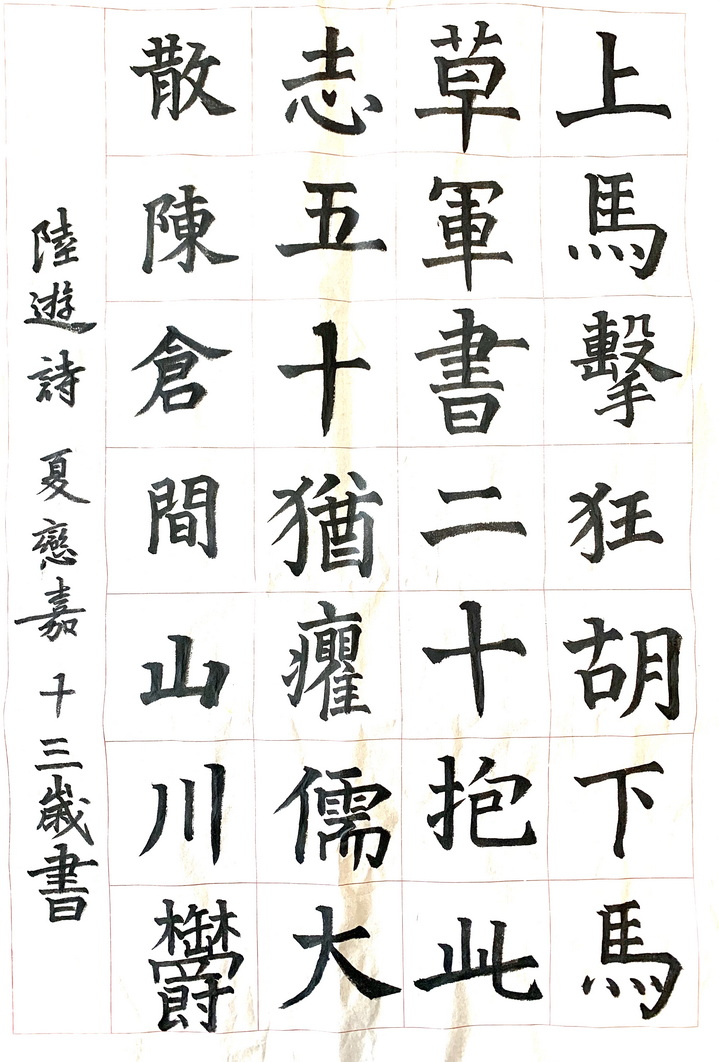 上馬擊狂胡下馬
草軍書二十抱此
志五十猶癯儒大
散陳倉間山川鬱
陸遊詩 夏戀嘉 十三歲書